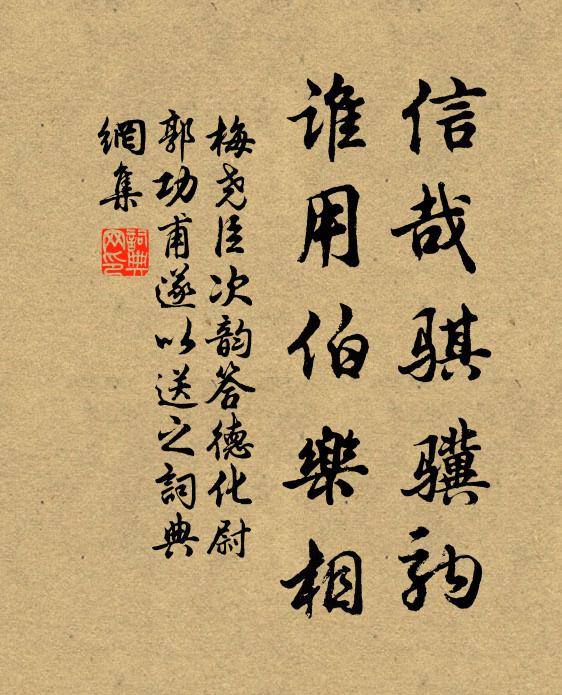 信哉骐骥驹
谁用伯樂相
梅尧臣次韵答德化尉
郭功甫遂以送之詞典
網集
詞典
网印